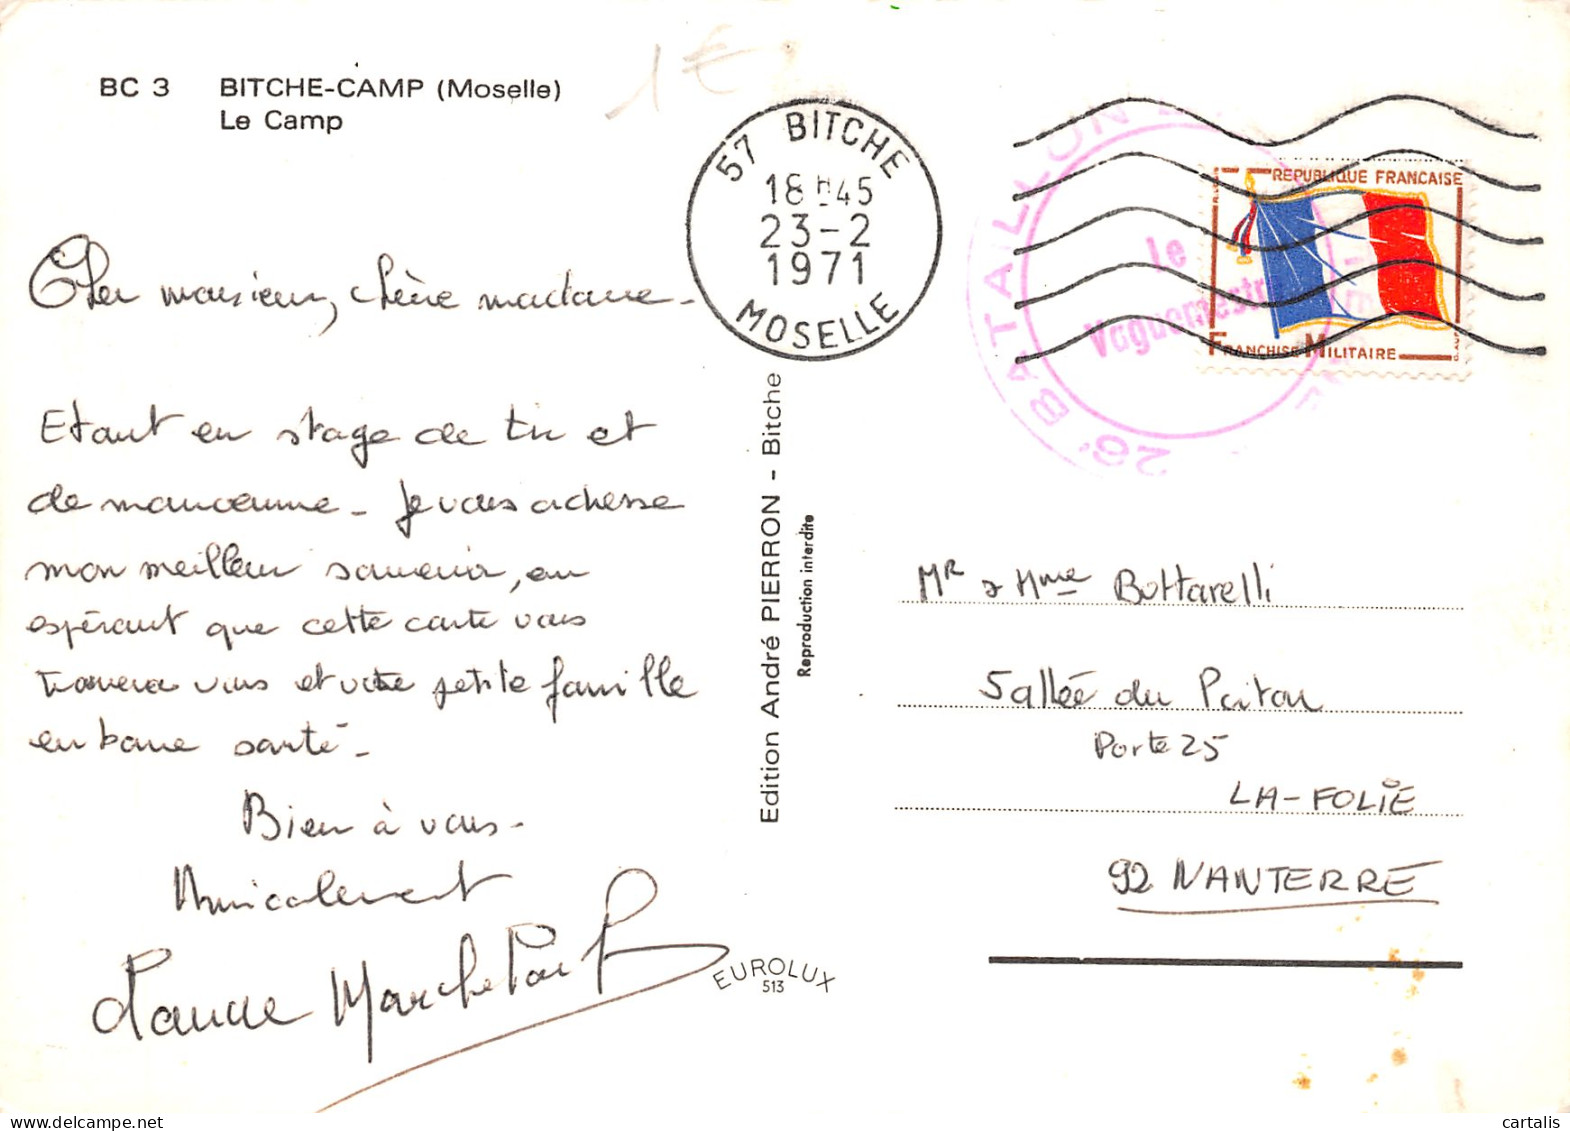 1€
BC 3 BITCHE-CAMP (Moselle)
Le Camp
57 BITCHE
18H45
23-2
1971
MOSELLE
26e BATAILLON
le
Vaguemestre
REPUBLIQUE FRANCAISE
FRANCHISE MILITAIRE
Cher monsieur, chère madame -
Etant en stage de tir et
de manoeuvre - je vous adresse
mon meilleur souvenir, en
espérant que cette carte vous
trouvera vous et votre petite famille
en bonne santé -
Bien à vous -
Amicalement
Claude
Edition André PIERRON - Bitche
Reproduction interdite
EUROLUX
513
Mr & Mme Bottarelli
5 allée du Poitou
Porte 25
LA-FOLIE
92 NANTERRE
cartalis